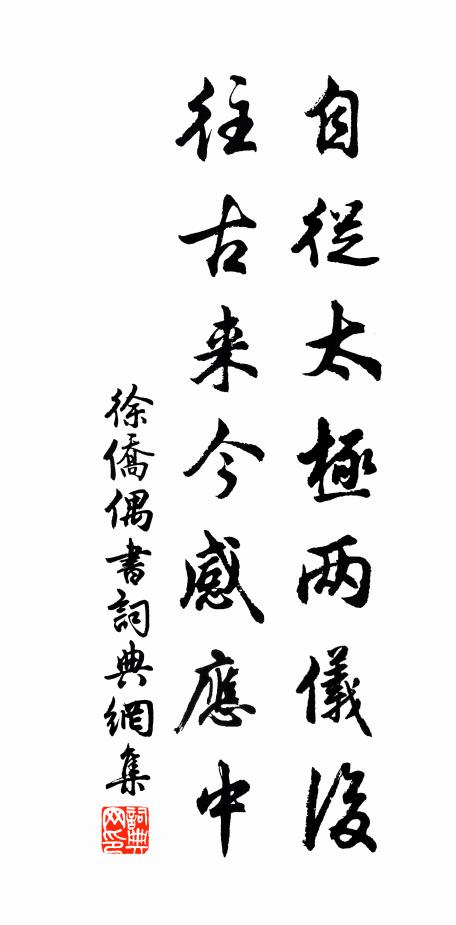 自從太極兩儀後
往古来今感應中
徐僑偶書詞典網集
詞典网印